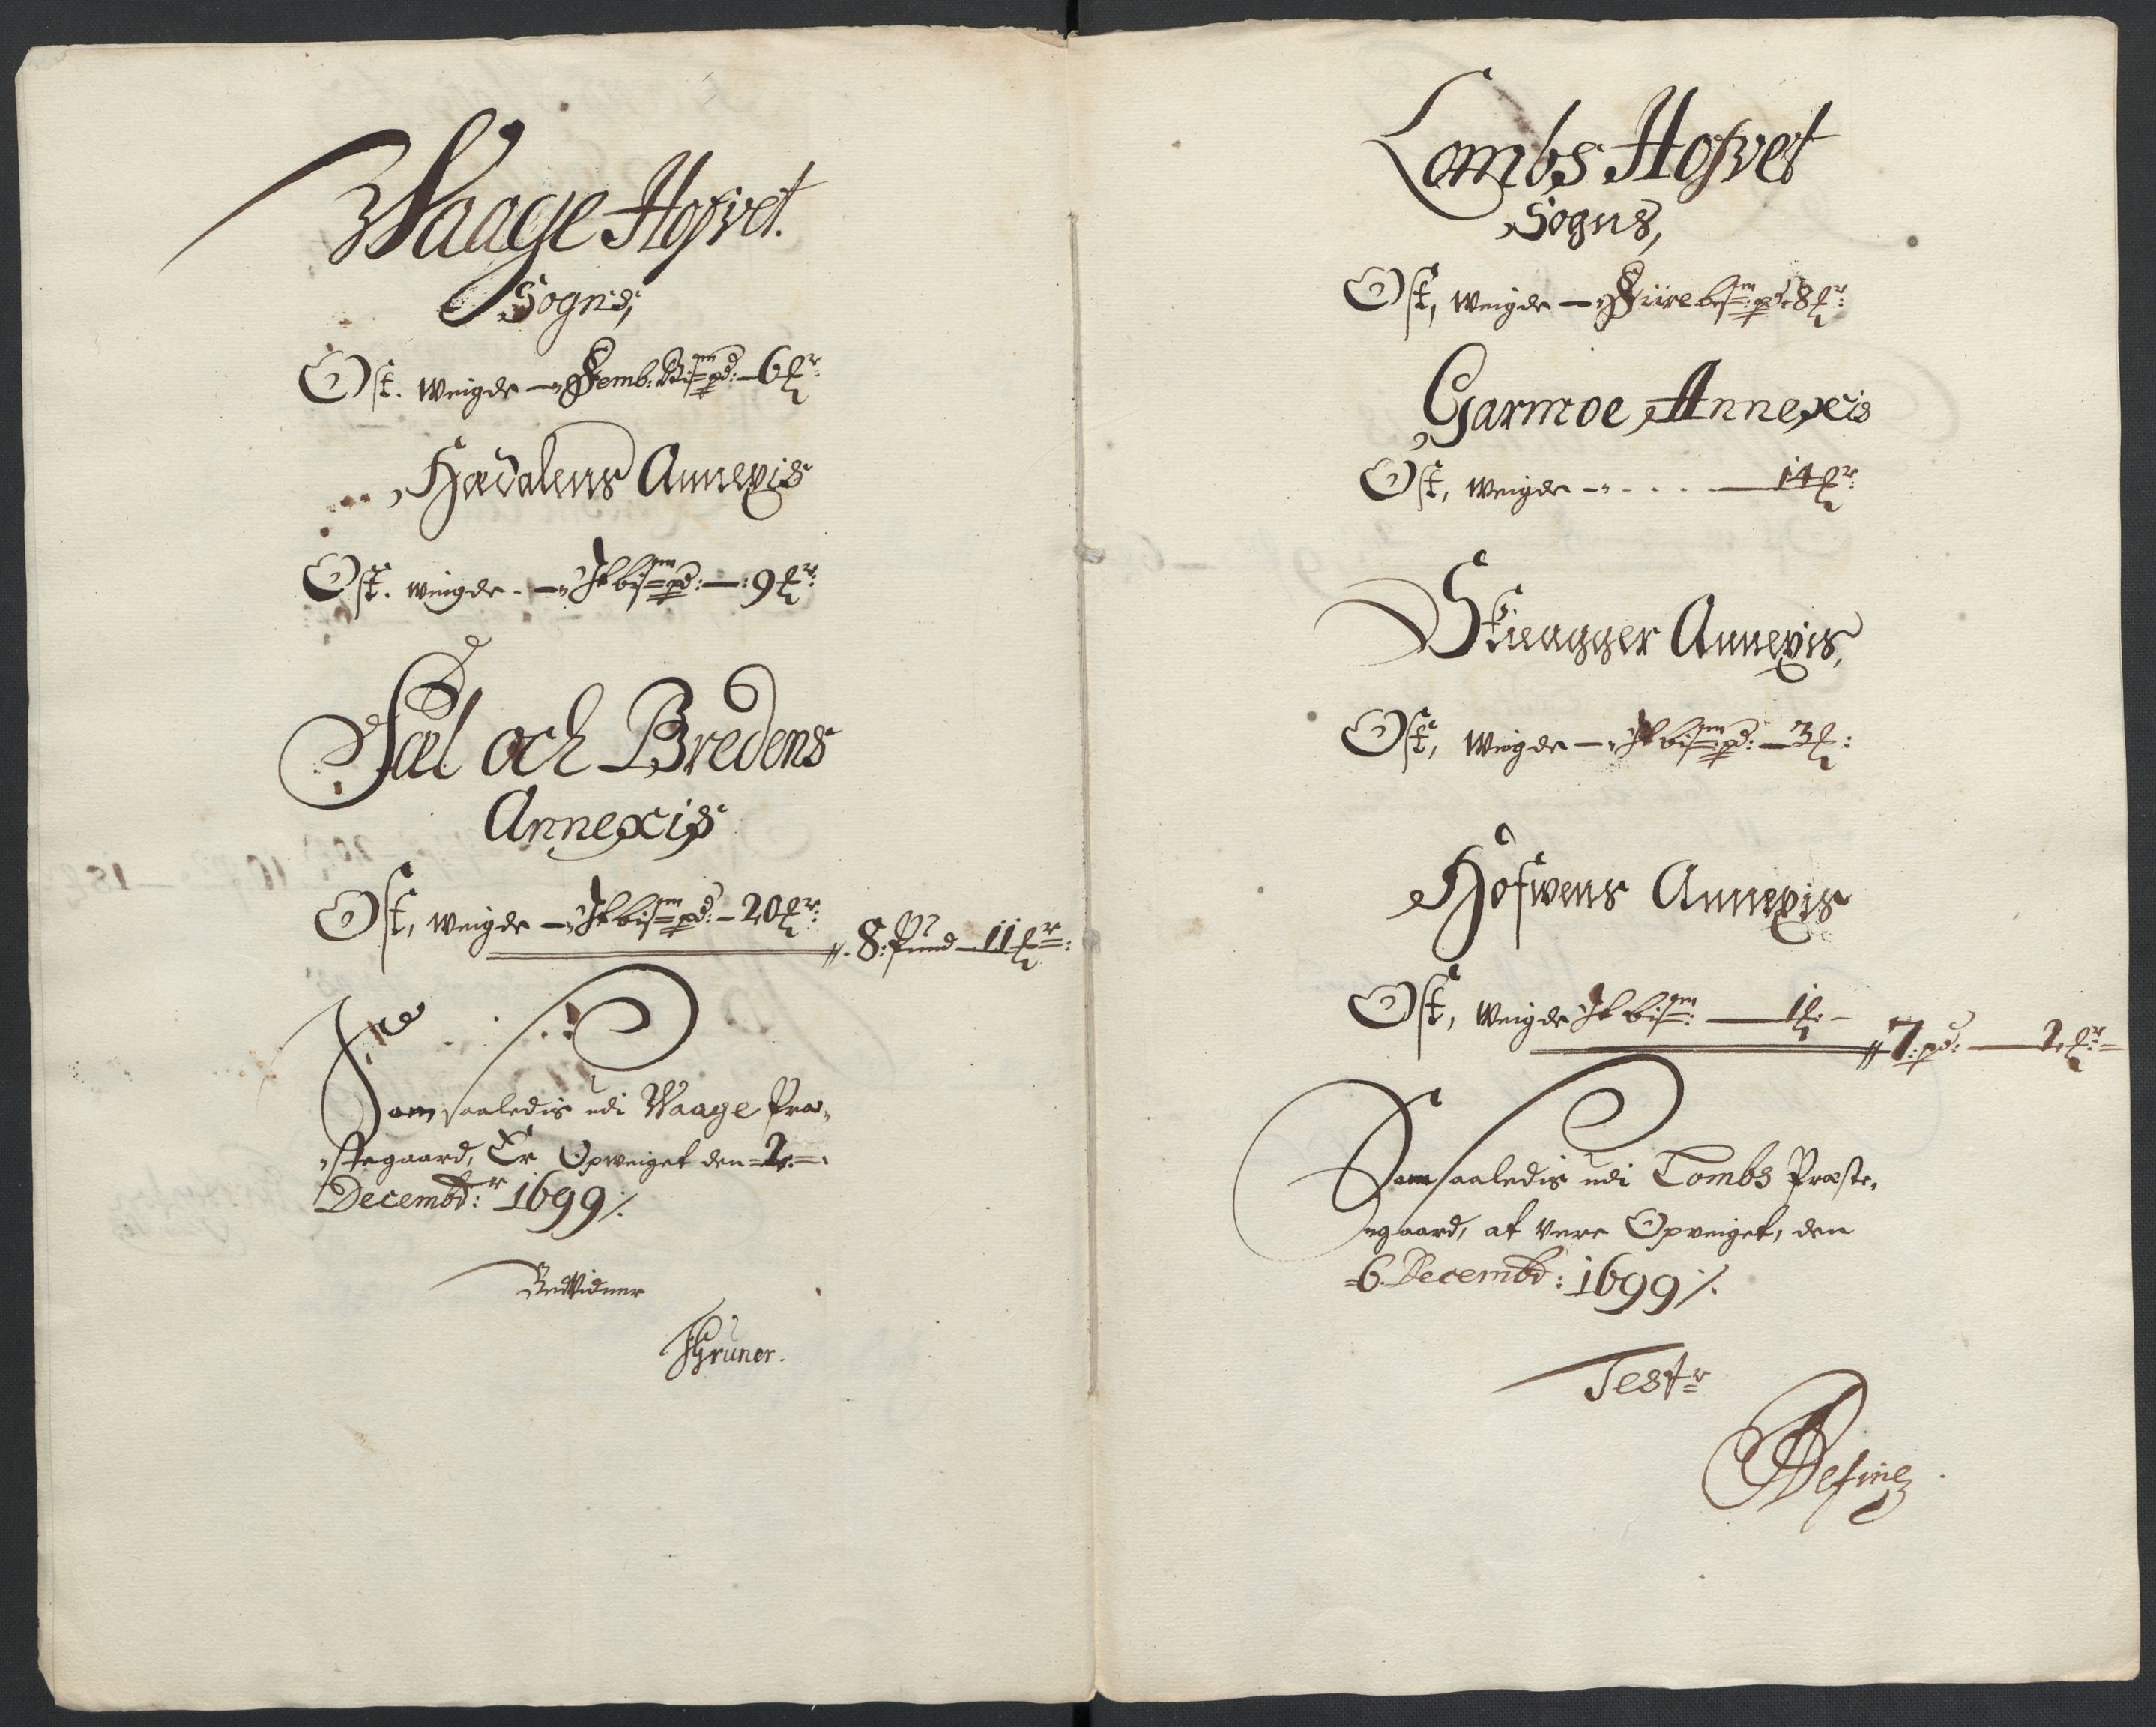 Waage Hofvet
Sogns,
Ost. weigde — Femb: Bis:m pd: — 6 ℔r:
Hædalens Annexis
Ost. weigde — It bis:m pd: — 9 ℔r:
Sæl och Bredens
Annexis
Ost, weigde — It bis:m pd: — 20 ℔r:
8: Pund — 11 ℔r:
Som saaledis udi Waage Præ-
stegaard, Er Opweiget den 2
Decembr: 1699 ./.
Gruner.
Lombs Hofvet
Sogns,
Ost, weigde — Fiire bis:m pd: 8 ℔r:
Garmoe Annexis
Ost, weigde — 14 ℔r:
Skieagger Annexis,
Ost, weigde — It bis:m pd: — 3 ℔:
Höfwens Annexis
Ost, weigde It bis:m: — 1 ℔: —
7: pd: — 2 ℔r:
Som saaledis udi Lombs Præste-
egaard, at vere Opveiget, den
6. Decembr: 1699 ./.
Testr